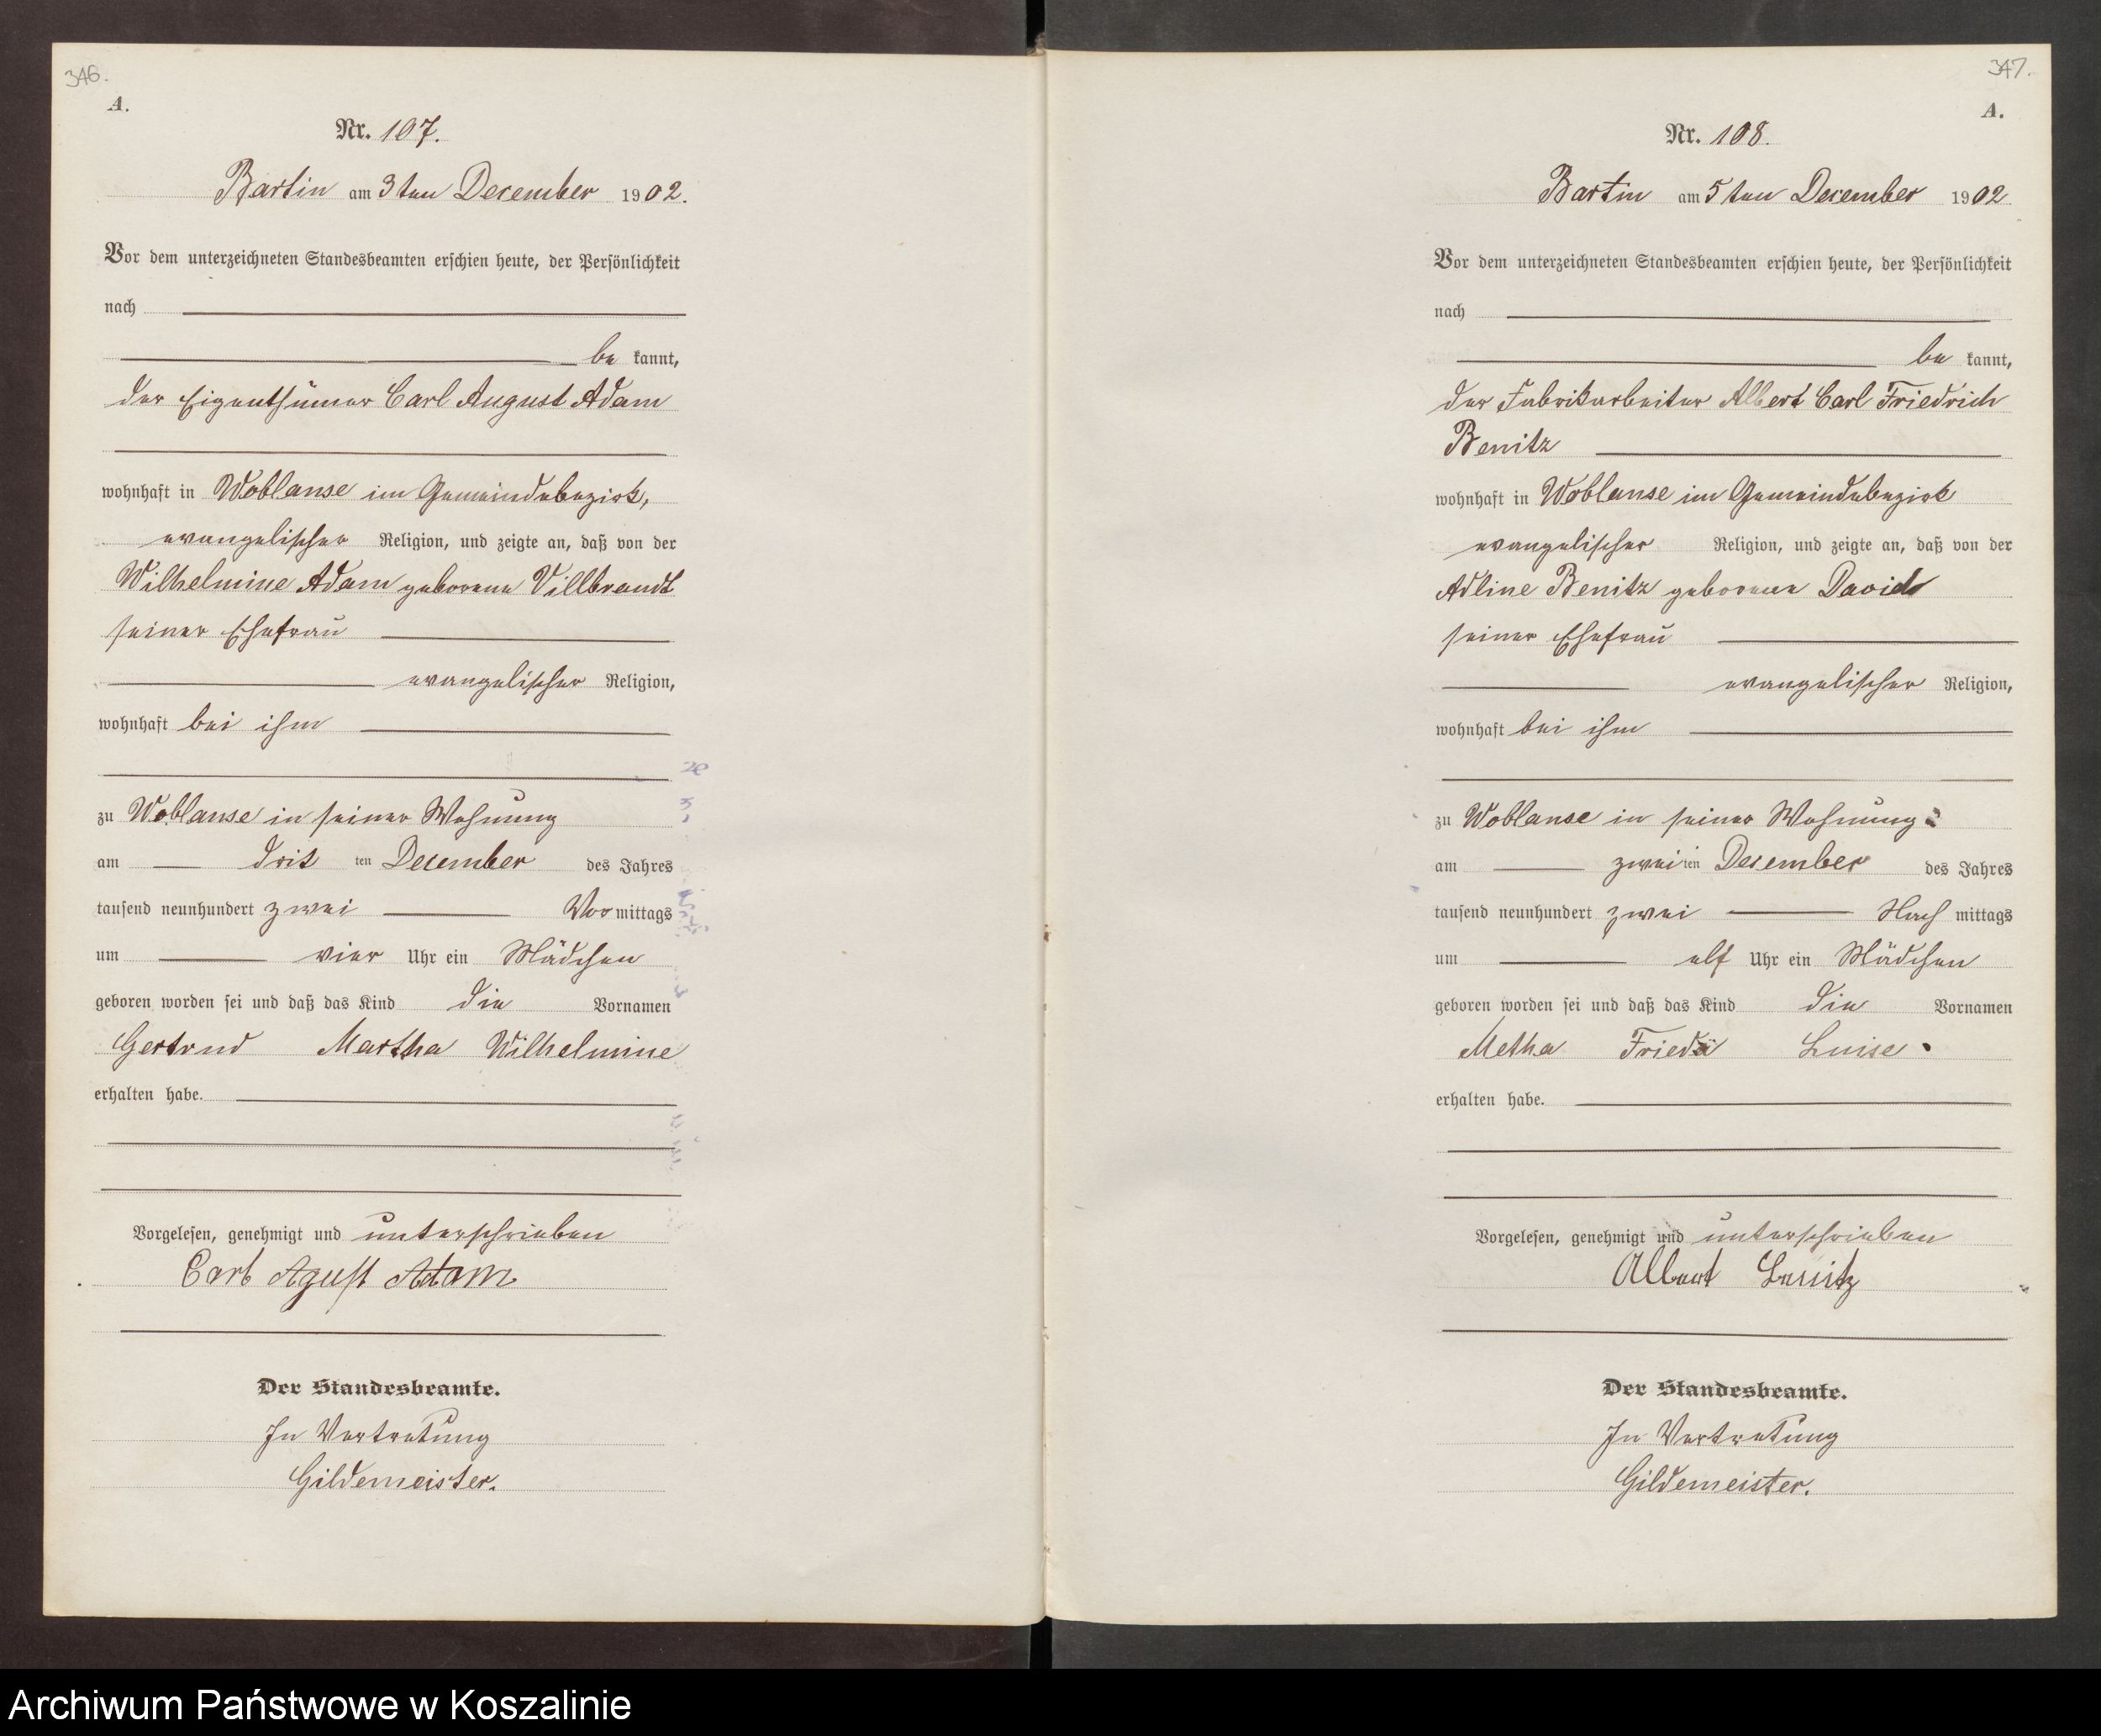 346.
A.
Nr. 107.
Bartin am 3ten December 1902.
Vor dem unterzeichneten Standesbeamten erschien heute, der Persönlichkeit
nach
be kannt,
der Eigenthümer Carl August Adam
wohnhaft in Woblanse im Gemeindebezirk,
evangelischer Religion, und zeigte an, daß von der
Wilhelmine Adam geborene Villbrandt
seiner Ehefrau
evangelischer Religion,
wohnhaft bei ihm
zu Woblanse in seiner Wohnung
am drit ten December des Jahres
tausend neunhundert zwei Vor mittags
um vier Uhr ein Mädchen
geboren worden sei und daß das Kind die Vornamen
Gertrud Martha Wilhelmine
erhalten habe.
Vorgelesen, genehmigt und unterschrieben
Carl Agust Adam
Der Standesbeamte.
In Vertretung
Gildemeister.
347.
A.
Nr. 108.
Bartin am 5ten December 1902
Vor dem unterzeichneten Standesbeamten erschien heute, der Persönlichkeit
nach
be kannt,
der Fabrikarbeiter Albert Carl Friedrich
Benitz
wohnhaft in Woblanse im Gemeindebezirk
evangelischer Religion, und zeigte an, daß von der
Adline Benitz geborene David
seiner Ehefrau
evangelischer Religion,
wohnhaft bei ihm
zu Woblanse in seiner Wohnung
am zwei ten December des Jahres
tausend neunhundert zwei Nach mittags
um elf Uhr ein Mädchen
geboren worden sei und daß das Kind die Vornamen
Metha Frieda Luise
erhalten habe.
Vorgelesen, genehmigt und unterschrieben
Albert Benitz
Der Standesbeamte.
In Vertretung
Gildemeister.
Archiwum Państwowe w Koszalinie